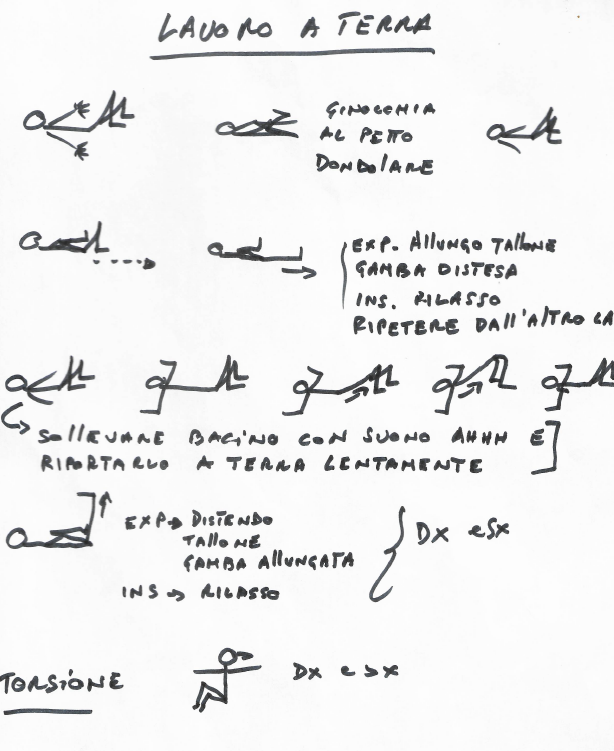 LAVORO A TERRA
GINOCCHIA
AL PETTO
DONDOLARE
EXP. ALLUNGO TALLONE
GAMBA DISTESA
INS. RILASSO
RIPETERE DALL'ALTRO LA
SOLLEVARE BACINO CON SUONO AHHH E
RIPORTARLO A TERRA LENTAMENTE
EXP → DISTENDO
TALLONE
GAMBA ALLUNGATA
INS → RILASSO
DX e SX
TORSIONE
DX e SX